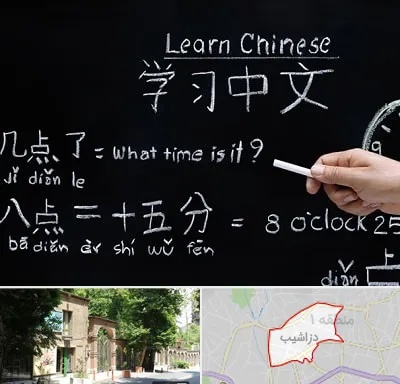 Learn Chinese
学习中文
几点了 = what time is it?
jǐ diǎn le
9
八点二十五分 = 8 o'clock 25
bā diǎn èr shí wǔ fēn
diǎn 上
منطقه ۱
دزاشیب